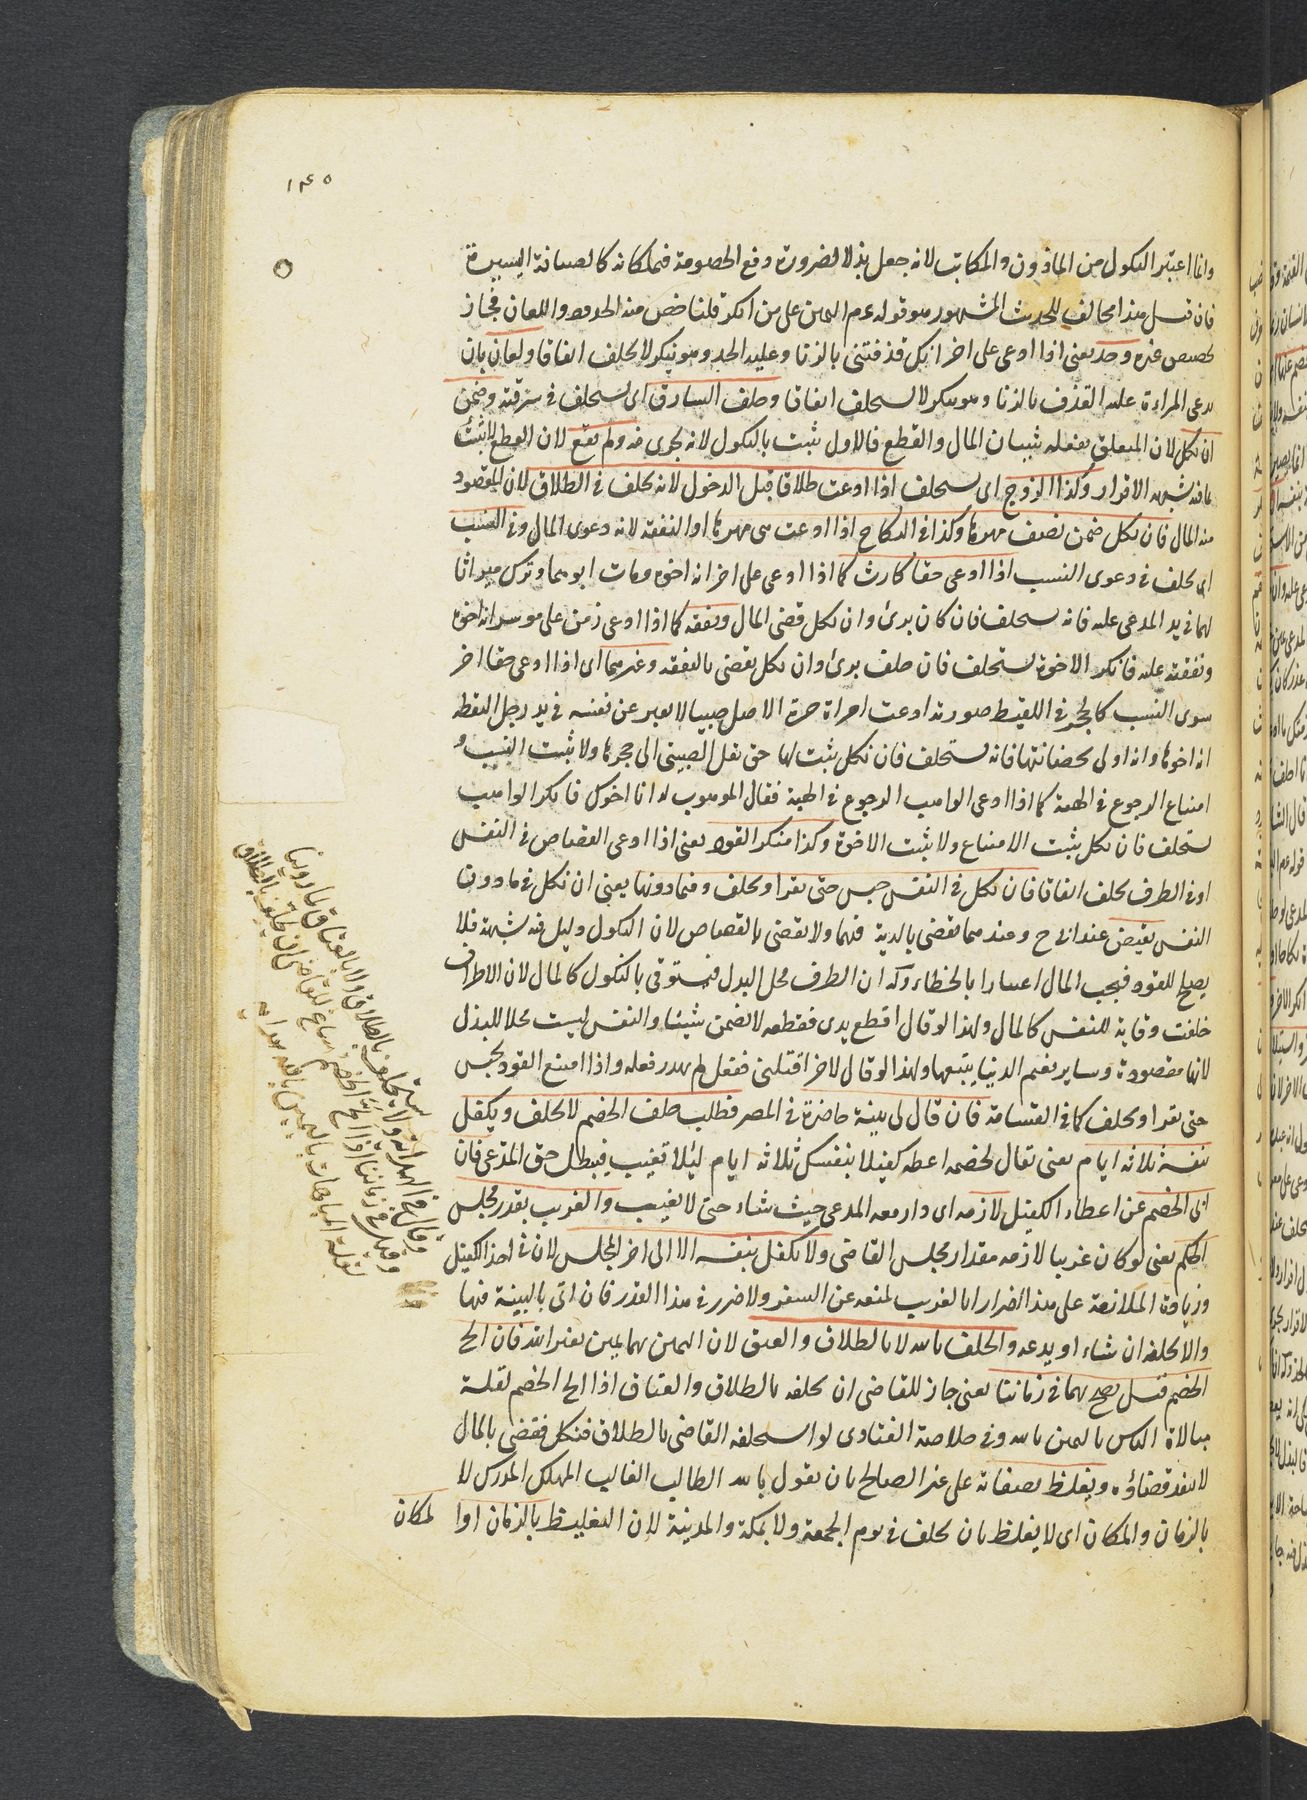 ١٣٤٥
وانما اعتبر النكول من الماذون والمكاتب لانه جعل بذلا لضرورة دفع الخصومة فيملكانه كالضيافة اليسيرة
فان قيل هذا مخالف للحديث المشهور هو قوله عم اليمين على من انكر قلنا خص منه الحدود واللعان فجاز
تخصيص غيره وحد يعنى اذا ادعى على اخر انك قذفتنى بالزنا وعليه الحد وهو ينكر لا يحلف اتفاقا ولعان بان
يدعى المراءة عليه القذف بالزنا وهو ينكر لا يستحلف اتفاقا وحلف السارق اى يستحلف فى سرقته وضمن
ان نكل لان المتعلق بفعله شيئان المال والقطع فالاول يثبت بالنكول لانه يجرى فيه ولم يقع لان القطع لا يثبت
بما فيه شبهه الاقرار وكذا الزوج اى يستحلف اذا ادعت طلاقا قبل الدخول لانه يحلف فى الطلاق لان المقصود
منه المال فان نكل ضمن نصف مهرها وكذا فى النكاح اذا ادعت هى مهرها او النفقة لانه دعوى المال وفى النسب
اى يحلف فى دعوى النسب اذا ادعى حقا كارث كما اذا ادعى على اخر انه اخوه ومات ابوهما وترك ميراثا
لهما فى يد المدعى عليه فانه يستحلف فان كان برئ وان نكل قضى المال ونفقه كما اذا ادعى زمن على موسر انه اخوه
ونفقته عليه فانكر الاخوة يستحلف فان حلف برئ وان نكل يقضى بالنفقه وغيرهما اى اذا ادعى حقا اخر
سوى النسب كالحجر فى اللقيط صورته ادعت امراة حرة الاصل صبيا لا يعبر عن نفسه فى يد رجل التقطه
انه اخوها وانه اولى بحضانتها فانه يستحلف فان نكل ثبت لها حق نقل الصبى الى حجرها ولا يثبت النسب و
امتناع الرجوع فى الهبة كما اذا ادعى الواهب الرجوع فى الهبة فقال الموهوب له انا اخوك فانكر الواهب
يستحلف فان نكل يثبت الامتناع ولا يثبت الاخوة وكذا منكر القود يعنى اذا ادعى القصاص فى النفس
او فى الطرف يحلف اتفاقا فان نكل فى النفس حبس حتى يقر او يحلف وفيما دونها يعنى ان نكل فى ما دون
النفس يقتص عند ابى ح وعندهما يقضى بالدية فيهما ولا يقضى بالقصاص لان النكول دليل فيه شبهة فلا
يصلح للقود فيجب المال اعتبارا بالخطاء وله ان الطرف محل البدل فيستوفى بالنكول كالمال لان الاطراف
خلقت وقاية للنفس كالمال ولهذا لو قال اقطع يدى فقطعه لا يضمن شيئا والنفس ليست محلا للبذل
لانها مقصودة وساير نعيم الدنيا يتبعها ولهذا لو قال لاخر اقتلنى فقتل لم يهدر فعله واذا امتنع القود يحبس
حتى يقر او يحلف كما فى القسامة فان قال لى بينة حاضرة فى المصر فطلب حلف الخصم لا يحلف ويكفل
بنفسه ثلاثه ايام يعنى يقال لخصمه اعطه كفيلا بنفسك ثلاثه ايام ليلا تغيب فيبطل حق المدعى فان
ابى الخصم عن اعطاء الكفيل لازمه اى دار معه المدعى حيث شاء حتى لا يغيب والغريب بقدر مجلس
الحكم يعنى لو كان غريبا لازمه مقدار مجلس القاضى ولا يكفل بنفسه الا الى اخر المجلس لان فى اخذ الكفيل
وزيادة الملازمة على هذا اضرارا بالغريب لمنعه عن السفر ولا ضرر فى هذا القدر فان اتى بالبينة فبها
والا يحلفه ان شاء او يدعه والحلف بالله لا بالطلاق والعتق لان اليمين بهما يمين بغير الله فان الح
الخصم قيل يصح بهما فى زماننا يعنى جاز للقاضى ان يحلفه بالطلاق والعتاق اذا الح الخصم لقلة
مبالاة الناس باليمين بالله وفى خلاصة الفتاوى لو استحلفه القاضى بالطلاق فنكل فقضى بالمال
لا ينفذ قضاؤه ويغلظ بصفاته على غير الصالح بان يقول بالله الطالب الغالب المهلك المدرك لا
بالزمان والمكان اى لا يغلظ بان يحلف فى يوم الجمعة ولا بمكة والمدينة لان التغليظ بالزمان او ا
لمكان
وقال فى الهداية ولا يستحلف بالطلاق ولا بالعتاق لما روينا
وقيل فى زماننا اذا الح الخصم ساغ للقاضى ان يحلف بالطلاق
لقلة المبالاة باليمين بالله هدايه